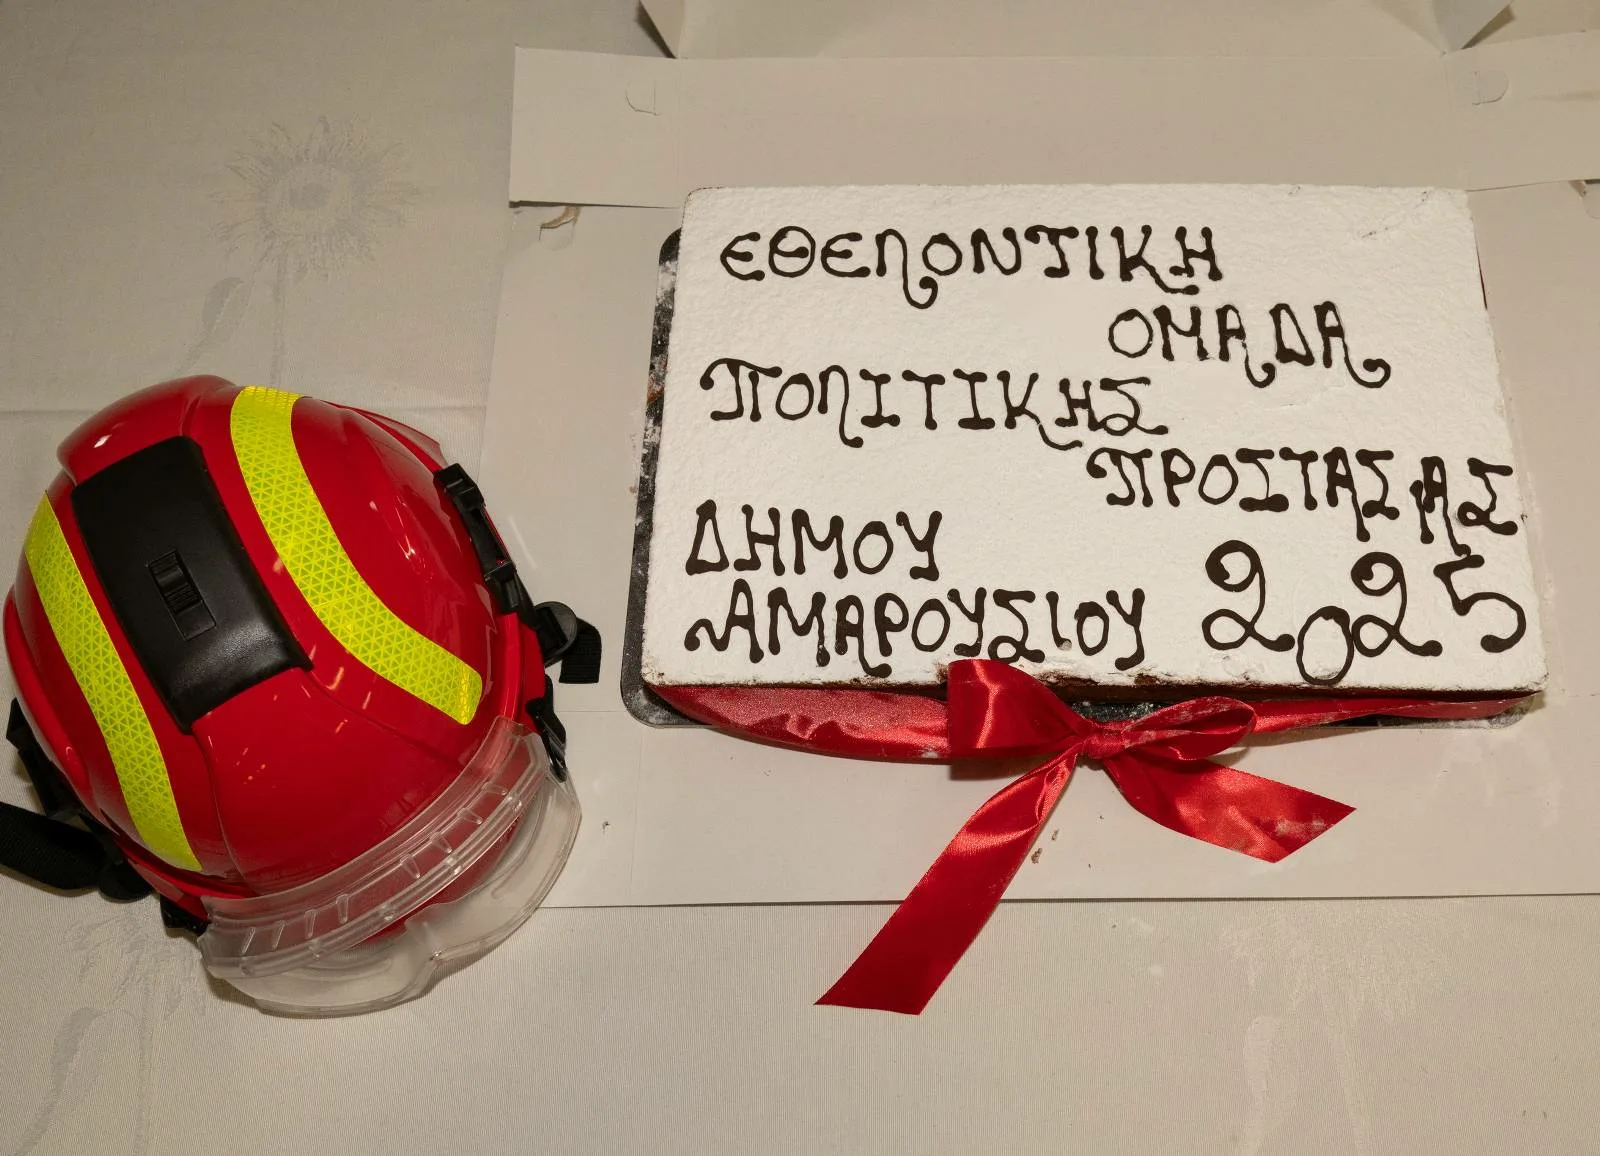 ΕΘΕΛΟΝΤΙΚΗ
ΟΜΑΔΑ
ΠΟΛΙΤΙΚΗΣ
ΠΡΟΣΤΑΣΙΑΣ
ΔΗΜΟΥ
ΑΜΑΡΟΥΣΙΟΥ 2025